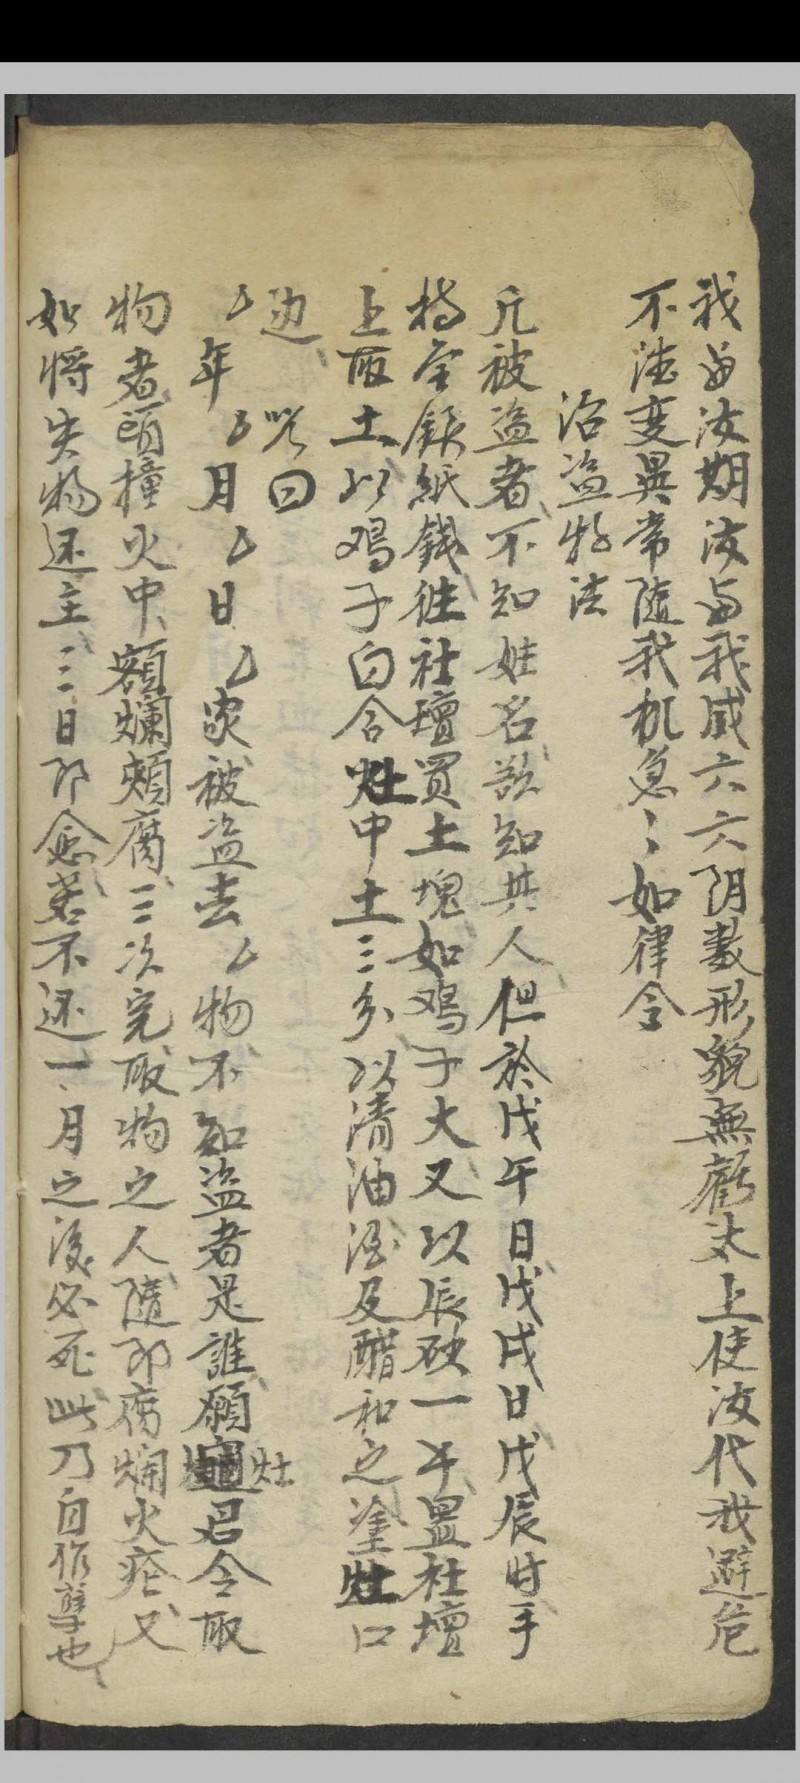 我与汝期汝与我咸六六阴数形貌無虧太上使汝代我避危
不法变異常随我机急〻如律令
治盗物法
凡被盗者不知姓名欲知其人但於戊午日戊戌日戊辰时手
持金銀紙錢徃社壇買土塊如鸡子大又以辰砂一半置社壇
上取土以鸡子白合灶中土三分以清油酒及醋和之塗灶口
边 咒曰
厶年厶月厶日厶家被盗去厶物不知盗者是誰願灶君令取
物者頭撞火中額爛頰腐三次完取物之人隨即腐爛火疮又
如将失物还主三日即愈若不还一月之後必死此乃自作孽也